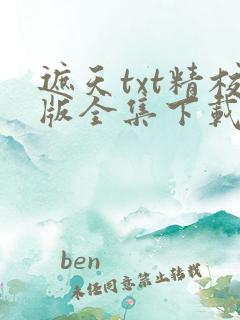 遮天txt精校
版全集下载
ben
未经同意禁止转载